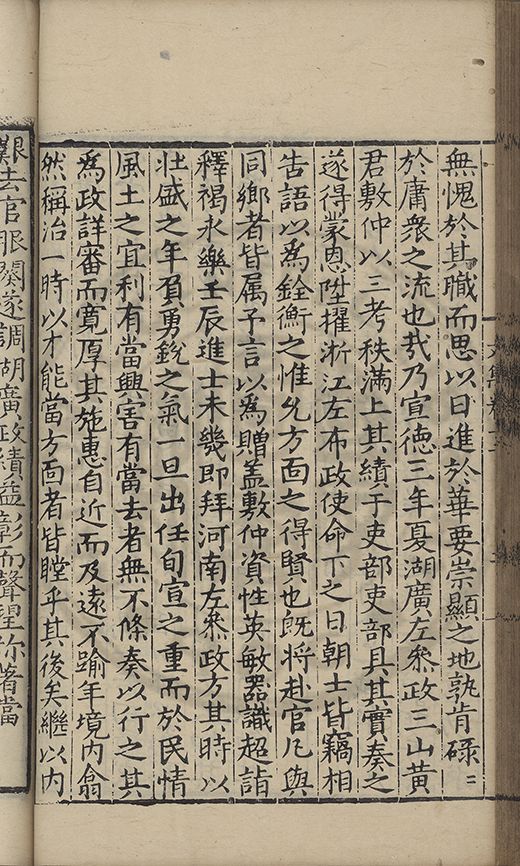 無愧於其職而思以日進於華要崇顯之地孰肯碌〻
於庸衆之流也㢤乃宣德三年夏湖廣左叅政三山黃
君敷仲以三考秩滿上其績于吏部吏部具其實奏之
遂得蒙恩陞擢浙江左布政使命下之日朝士皆竊相
告語以爲銓衡之惟允方面之得賢也旣將赴官凡與
同鄉者皆属予言以爲贈盖敷仲資性英敏器識超詣
釋褐永樂壬辰進士未幾即拜河南左叅政方其時以
壯盛之年負勇銳之氣一旦出任旬宣之重而於民情
風土之宜利有當興害有當去者無不條奏以行之其
爲政詳審而寬厚其施惠自近而及遠不踰年境内翕
然稱治一時以才能當方面者皆瞠乎其後矣繼以内
艱去官服闋遂調湖廣政績益彰而聲望弥著當